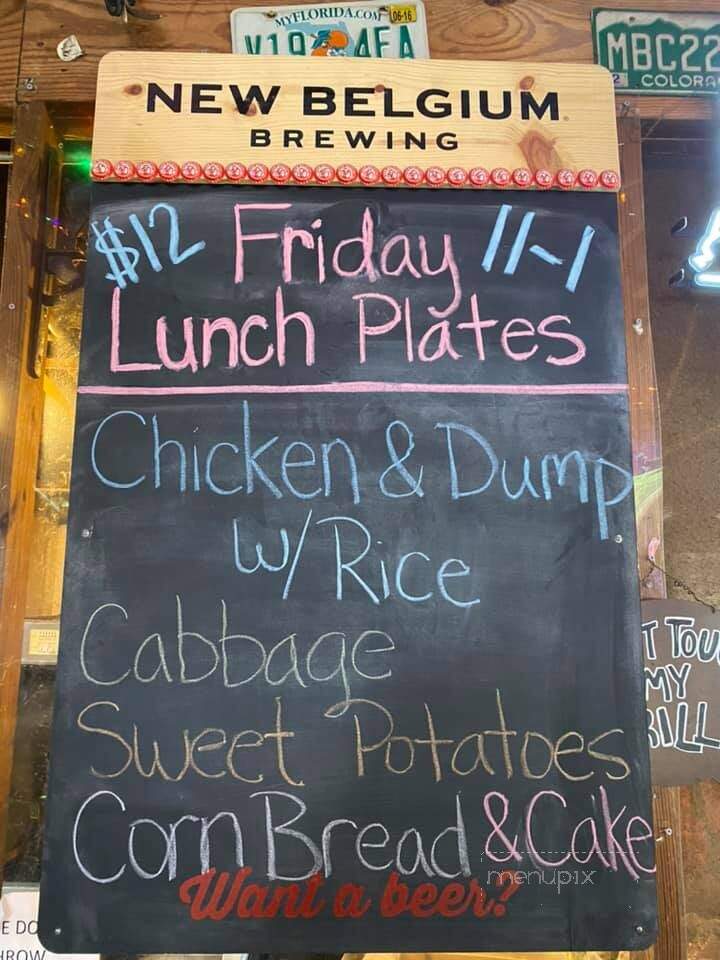 MYFLORIDA.COM 06-16
MBC22
2 COLORA
NEW BELGIUM
BREWING
$12 Friday 11-1
Lunch Plates
Chicken & Dump
w/ Rice
Cabbage
Sweet Potatoes
Corn Bread & Cake
Want a beer?
menupix
T TOU
MY
ILL
E DO
HROW